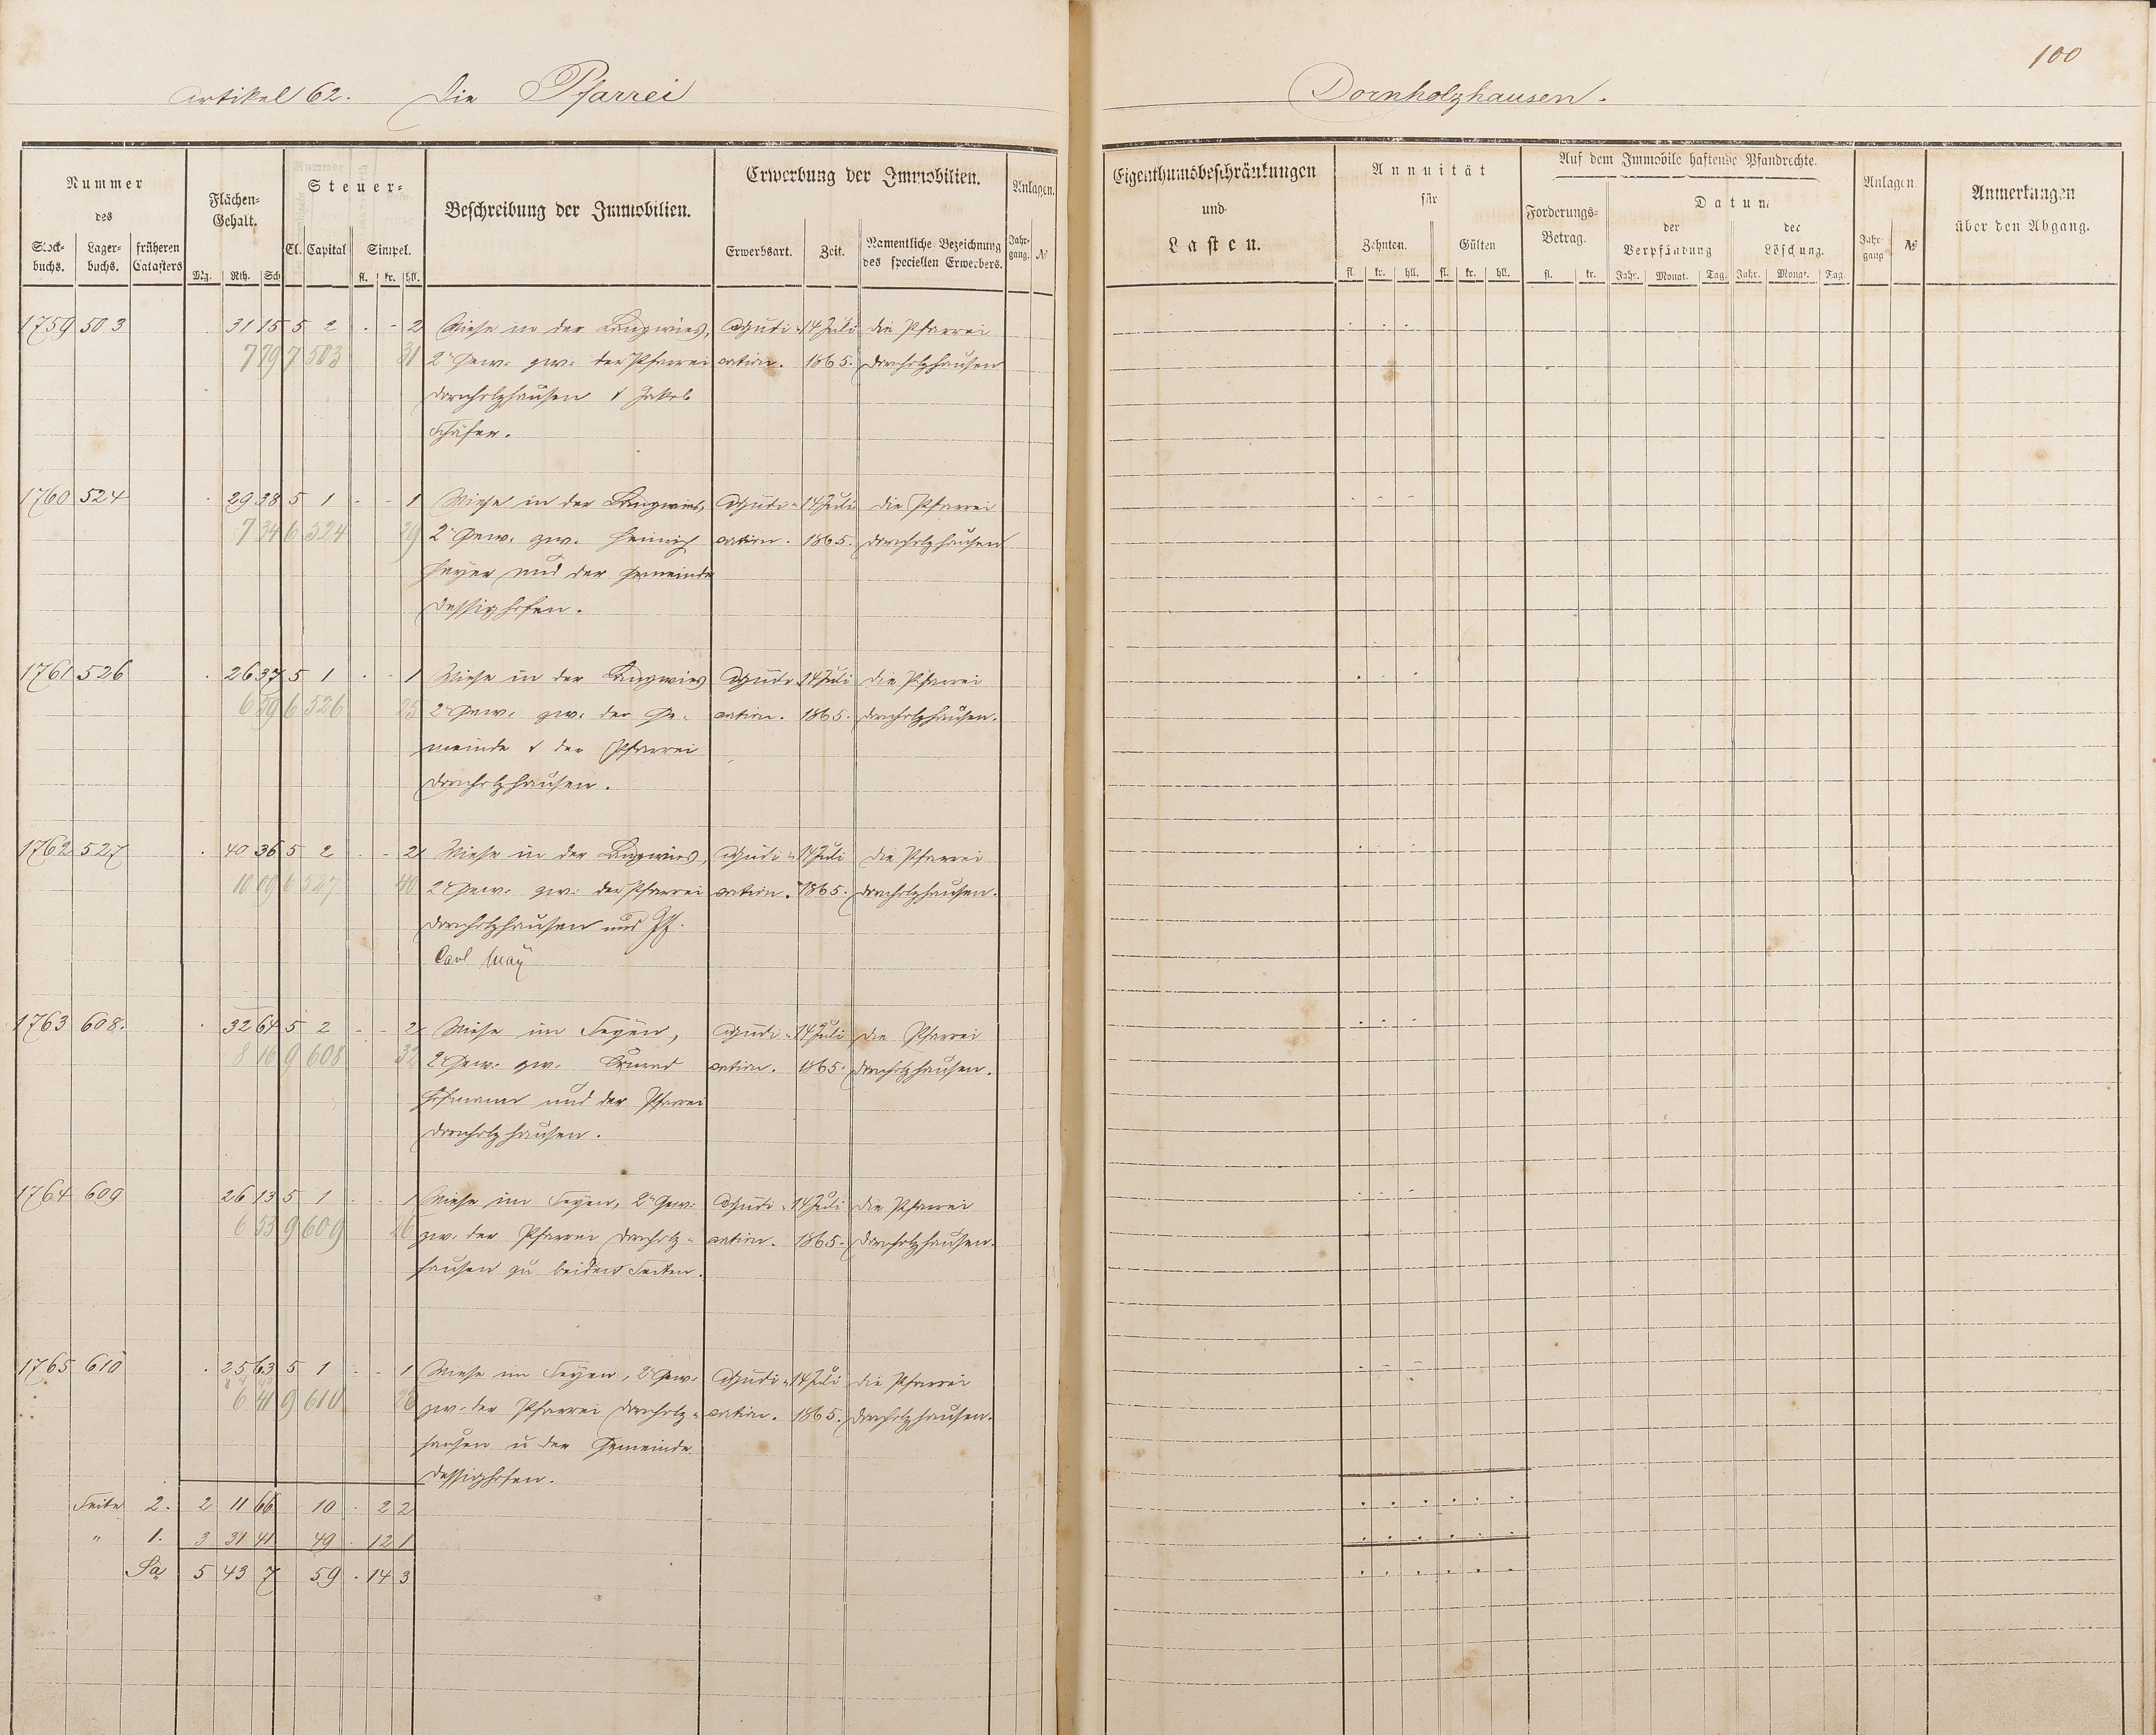 100
Artikel 62. Die Pfarrei Dornholzhausen.
Nummer des
Stock-buchs. Lager-buchs. früheren Catasters
Flächen-Gehalt.
Mg. Rth. Sch
Steuer-
Cl. Capital Simpel.
fl. kr. hll.
Beschreibung der Immobilien.
Erwerbung der Immobilien.
Erwerbsart. Zeit. Namentliche Bezeichnung des speciellen Erwerbers.
Anlagen.
Jahr-gang. №
Eigenthumsbeschränkungen und Lasten.
Annuität für
Zehnten. Gülten
fl. kr. hll. fl. kr. hll.
Auf dem Immobile haftende Pfandrechte.
Forderungs-Betrag.
fl. kr.
Datum
der Verpfändung der Löschung.
Jahr. Monat. Tag. Jahr. Monat. Tag.
Anlagen
Jahr-gang №
Anmerkungen über den Abgang.
1759 503 . 31 15 5 2 . - 2 Wiese in der Langwies, Adjudi- 14 Juli die Pfarrei
7 79 7 503 31 2r Gew. zw. der Pfarrei cation. 1865. Dornholzhausen
Dornholzhausen & Jakob
Schäfer.
1760 524 . 29 38 5 1 - - 1 Wiese in der Langwies, Adjudi- 14 Juli die Pfarrei
7 34 6 524 29 2r Gew. zw. Heinrich cation. 1865. Dornholzhausen
und der Gemeinde
Dessighofen.
1761 526 . 26 37 5 1 . - 1 Wiese in der Langwies Adjudi- 14 Juli die Pfarrei
6 59 6 526 25 2r Gew. zw. der Ge- cation. 1865. Dornholzhausen.
meinde & der Pfarrei
Dornholzhausen.
1762 527 . 40 36 5 2 - - 2 Wiese in der Langwies, Adjudi- 14 Juli die Pfarrei
10 09 6 527 40 2r Gew. zw. der Pfarrei cation. 1865. Dornholzhausen.
Dornholzhausen und
Carl May
1763 608. . 32 64 5 2 - - 2 Wiese im Seyen, Adjudi- 14 Juli die Pfarrei
8 16 9 608 32 2r Gew. zw. Conrad cation. 1865. Dornholzhausen.
Hofmann und der Pfarrei
Dornholzhausen.
1764 609 26 13 5 1 - - 1 Wiese im Seyen, 2r Gew. Adjudi- 14 Juli die Pfarrei
6 53 9 609 26 zw. der Pfarrei Dornholz- cation. 1865. Dornholzhausen.
hausen zu beiden Seiten.
1765 610 . 25 63 5 1 - - 1 Wiese im Seyen, 2r Gew. Adjudi- 14 Juli die Pfarrei
6 41 9 610 26 zw. der Pfarrei Dornholz- cation. 1865. Dornholzhausen.
hausen u der Gemeinde
Dessighofen.
Seite 2. 2 11 66 10 . 2 2
" 1. 3 31 41 49 . 12 1
Sa 5 43 7 59 . 14 3